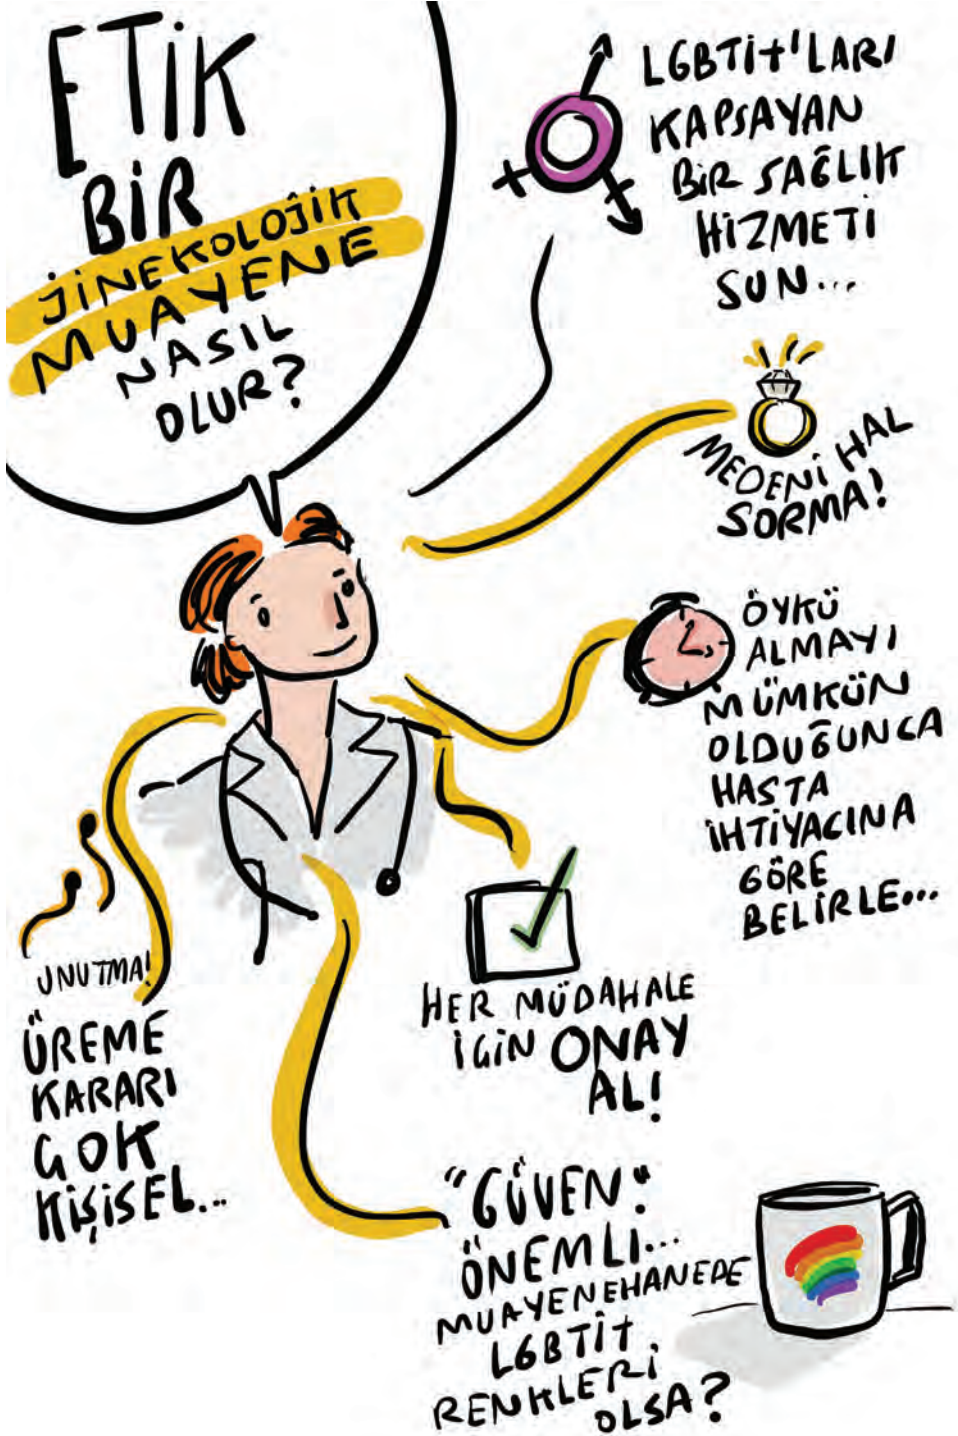 ETİK
BİR
JİNEKOLOJİK
MUAYENE
NASIL
OLUR?
LGBTİ+'LARI
KAPSAYAN
BİR SAĞLIK
HİZMETİ
SUN...
MEDENİ HAL
SORMA!
ÖYKÜ
ALMAYI
MÜMKÜN
OLDUĞUNCA
HASTA
İHTİYACINA
GÖRE
BELİRLE...
HER MÜDAHALE
İÇİN ONAY
AL!
UNUTMA!
ÜREME
KARARI
ÇOK
KİŞİSEL...
"GÜVEN"
ÖNEMLİ...
MUAYENEHANEDE
LGBTİ+
RENKLERİ
OLSA?